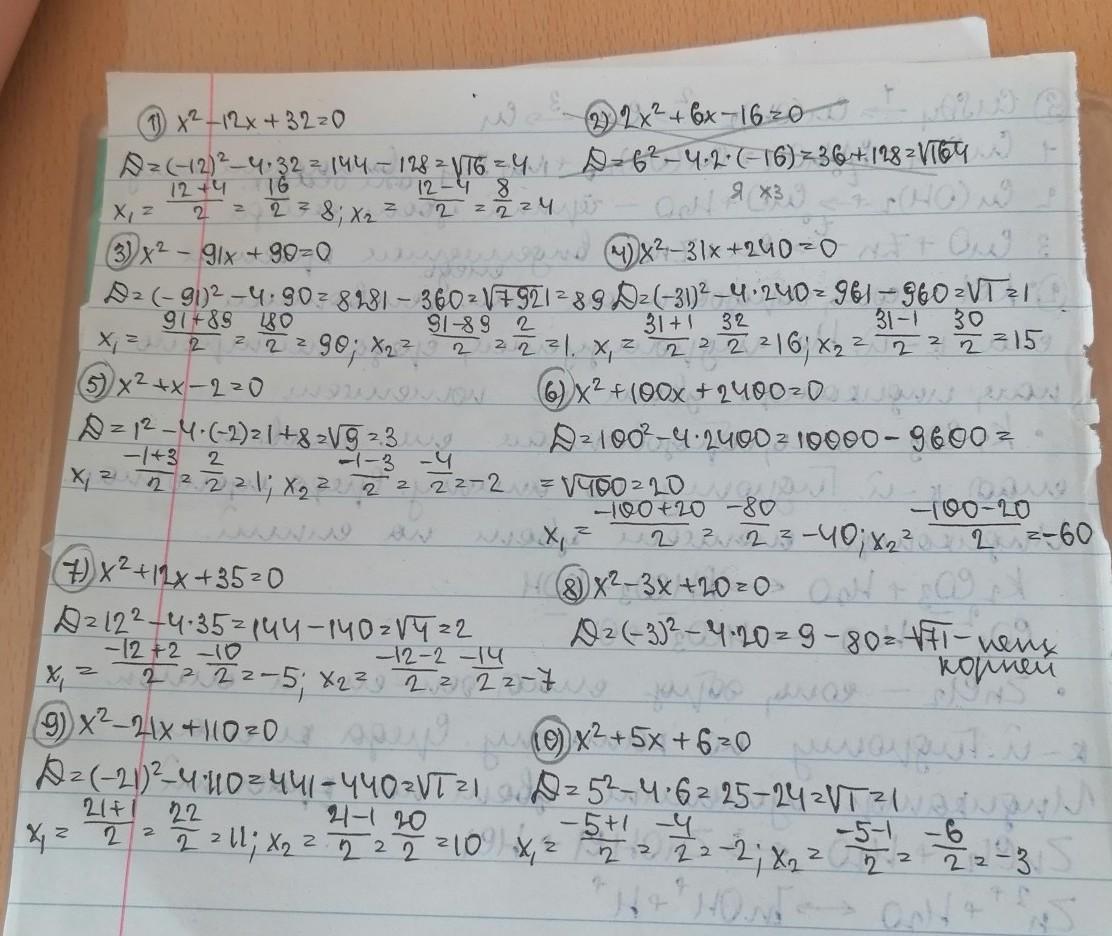 1) x² - 12x + 32 = 0
D = (-12)² - 4·32 = 144 - 128 = √16 = 4
x₁ = (12+4)/2 = 16/2 = 8; x₂ = (12-4)/2 = 8/2 = 4
2) 2x² + 6x - 16 = 0
D = 6² - 4·2·(-16) = 36 + 128 = √164
Я хз
3) x² - 91x + 90 = 0
D = (-91)² - 4·90 = 8281 - 360 = √7921 = 89
x₁ = (91+89)/2 = 180/2 = 90; x₂ = (91-89)/2 = 2/2 = 1.
4) x² - 31x + 240 = 0
D = (-31)² - 4·240 = 961 - 960 = √1 = 1
x₁ = (31+1)/2 = 32/2 = 16; x₂ = (31-1)/2 = 30/2 = 15
5) x² + x - 2 = 0
D = 1² - 4·(-2) = 1 + 8 = √9 = 3
x₁ = (-1+3)/2 = 2/2 = 1; x₂ = (-1-3)/2 = -4/2 = -2
6) x² + 100x + 2400 = 0
D = 100² - 4·2400 = 10000 - 9600 =
= √400 = 20
x₁ = (-100+20)/2 = -80/2 = -40; x₂ = (-100-20)/2 = -60
7) x² + 12x + 35 = 0
D = 12² - 4·35 = 144 - 140 = √4 = 2
x₁ = (-12+2)/2 = -10/2 = -5; x₂ = (-12-2)/2 = -14/2 = -7
8) x² - 3x + 20 = 0
D = (-3)² - 4·20 = 9 - 80 = -√71 - нету
корней
9) x² - 21x + 110 = 0
D = (-21)² - 4·110 = 441 - 440 = √1 = 1
x₁ = (21+1)/2 = 22/2 = 11; x₂ = (21-1)/2 = 20/2 = 10
10) x² + 5x + 6 = 0
D = 5² - 4·6 = 25 - 24 = √1 = 1
x₁ = (-5+1)/2 = -4/2 = -2; x₂ = (-5-1)/2 = -6/2 = -3